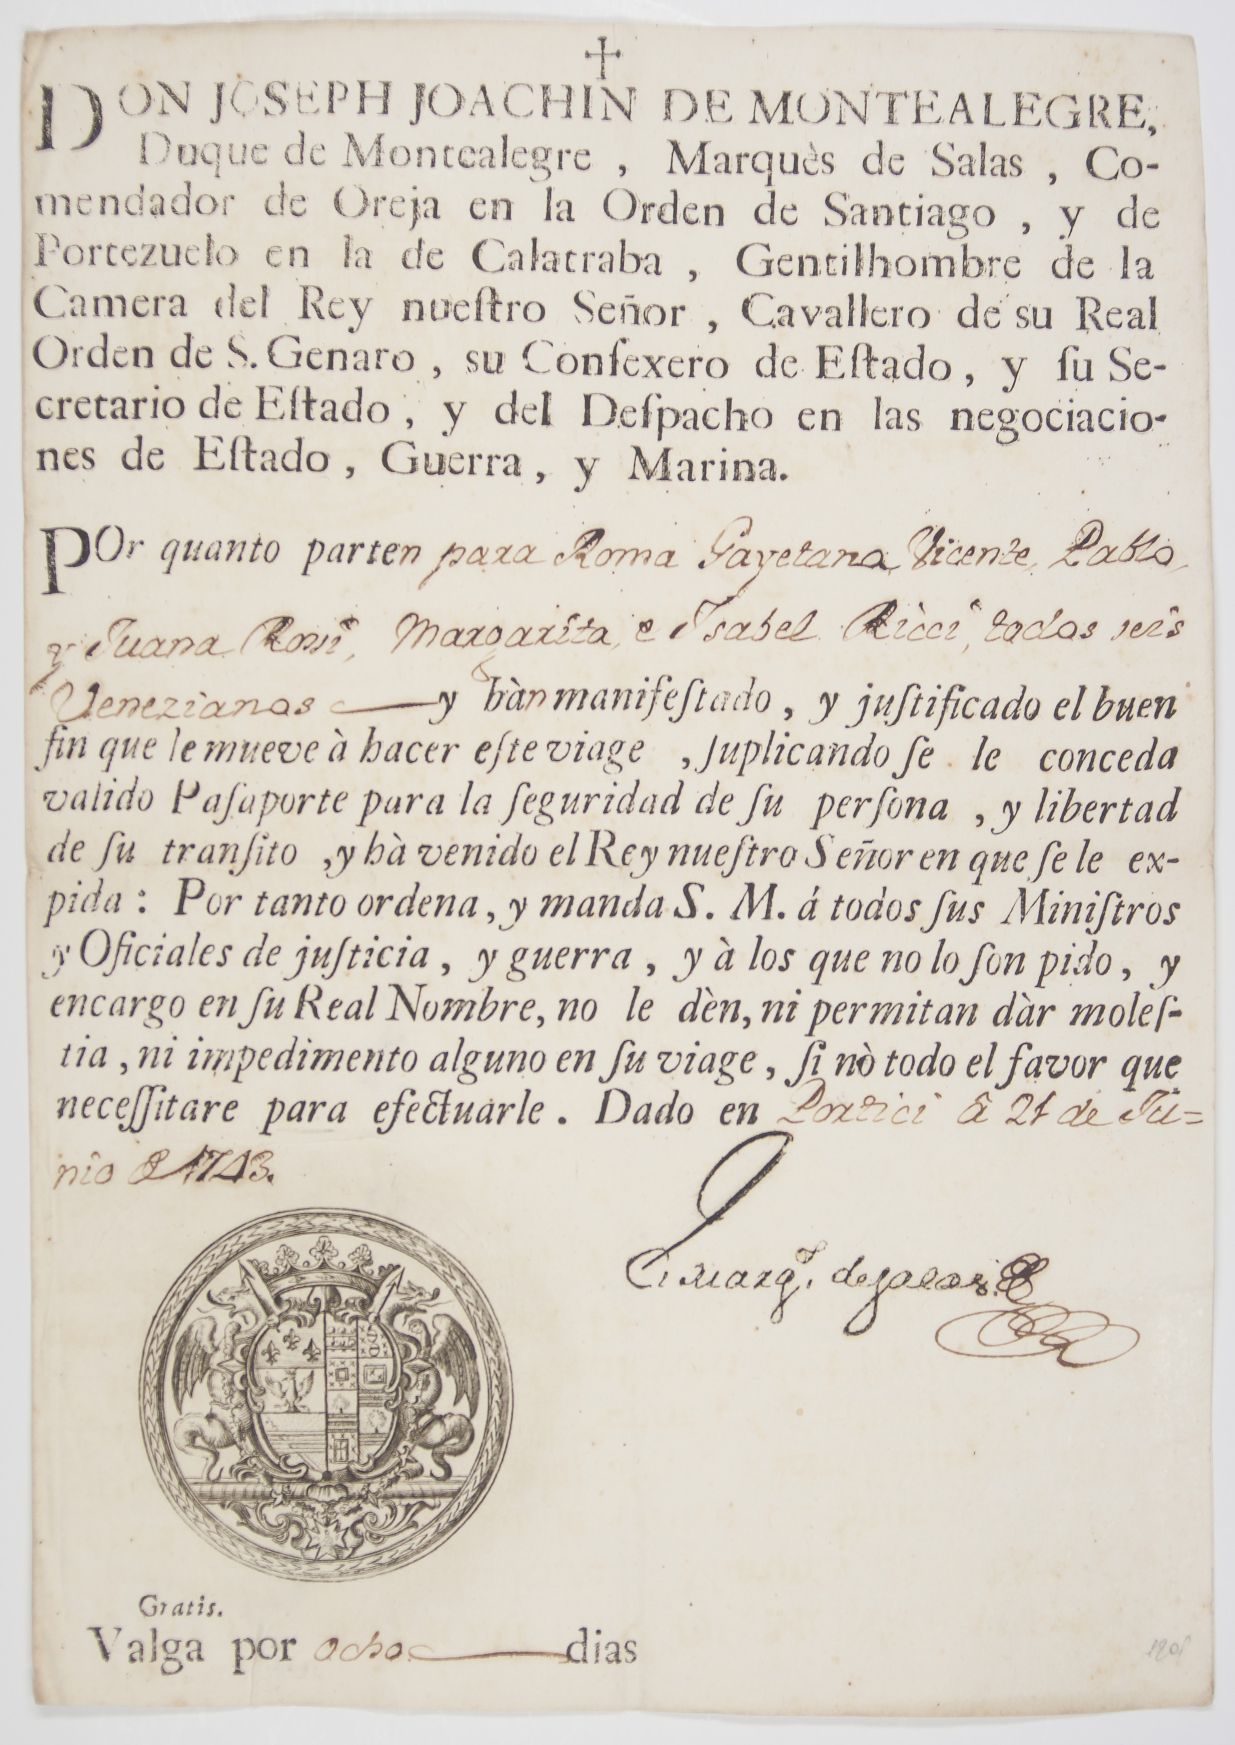 DON JOSEPH JOACHIN DE MONTEALEGRE,
Duque de Montealegre , Marquès de Salas , Co-
mendador de Oreja en la Orden de Santiago , y de
Portezuelo en la de Calatraba , Gentilhombre de la
Camera del Rey nueſtro Señor , Cavallero de su Real
Orden de S. Genaro , su Conſexero de Eſtado , y ſu Se-
cretario de Eſtado , y del Deſpacho en las negociacio-
nes de Eſtado , Guerra , y Marina.
POr quanto parten para Roma Gayetana, Vicente, Pablo,
y Juana Rossi, Margarita, e Isabel Ricci, todos seis
Venezianos y hàn manifeſtado , y juſtificado el buen
fin que le mueve à hacer eſte viage , ſuplicando ſe le conceda
valido Paſaporte para la ſeguridad de ſu perſona , y libertad
de ſu tranſito , y hà venido el Rey nueſtro Señor en que ſe le ex-
pida : Por tanto ordena , y manda S. M. á todos ſus Miniſtros
y Oficiales de juſticia , y guerra , y à los que no lo ſon pido , y
encargo en ſu Real Nombre, no le dèn, ni permitan dàr moleſ-
tia , ni impedimento alguno en ſu viage , ſi nò todo el favor que
neceſſitare para efectuarle . Dado en Portici à 21 de Ju=
nio de 1743.
El Marq.s de Salas
Gratis.
Valga por ocho dias